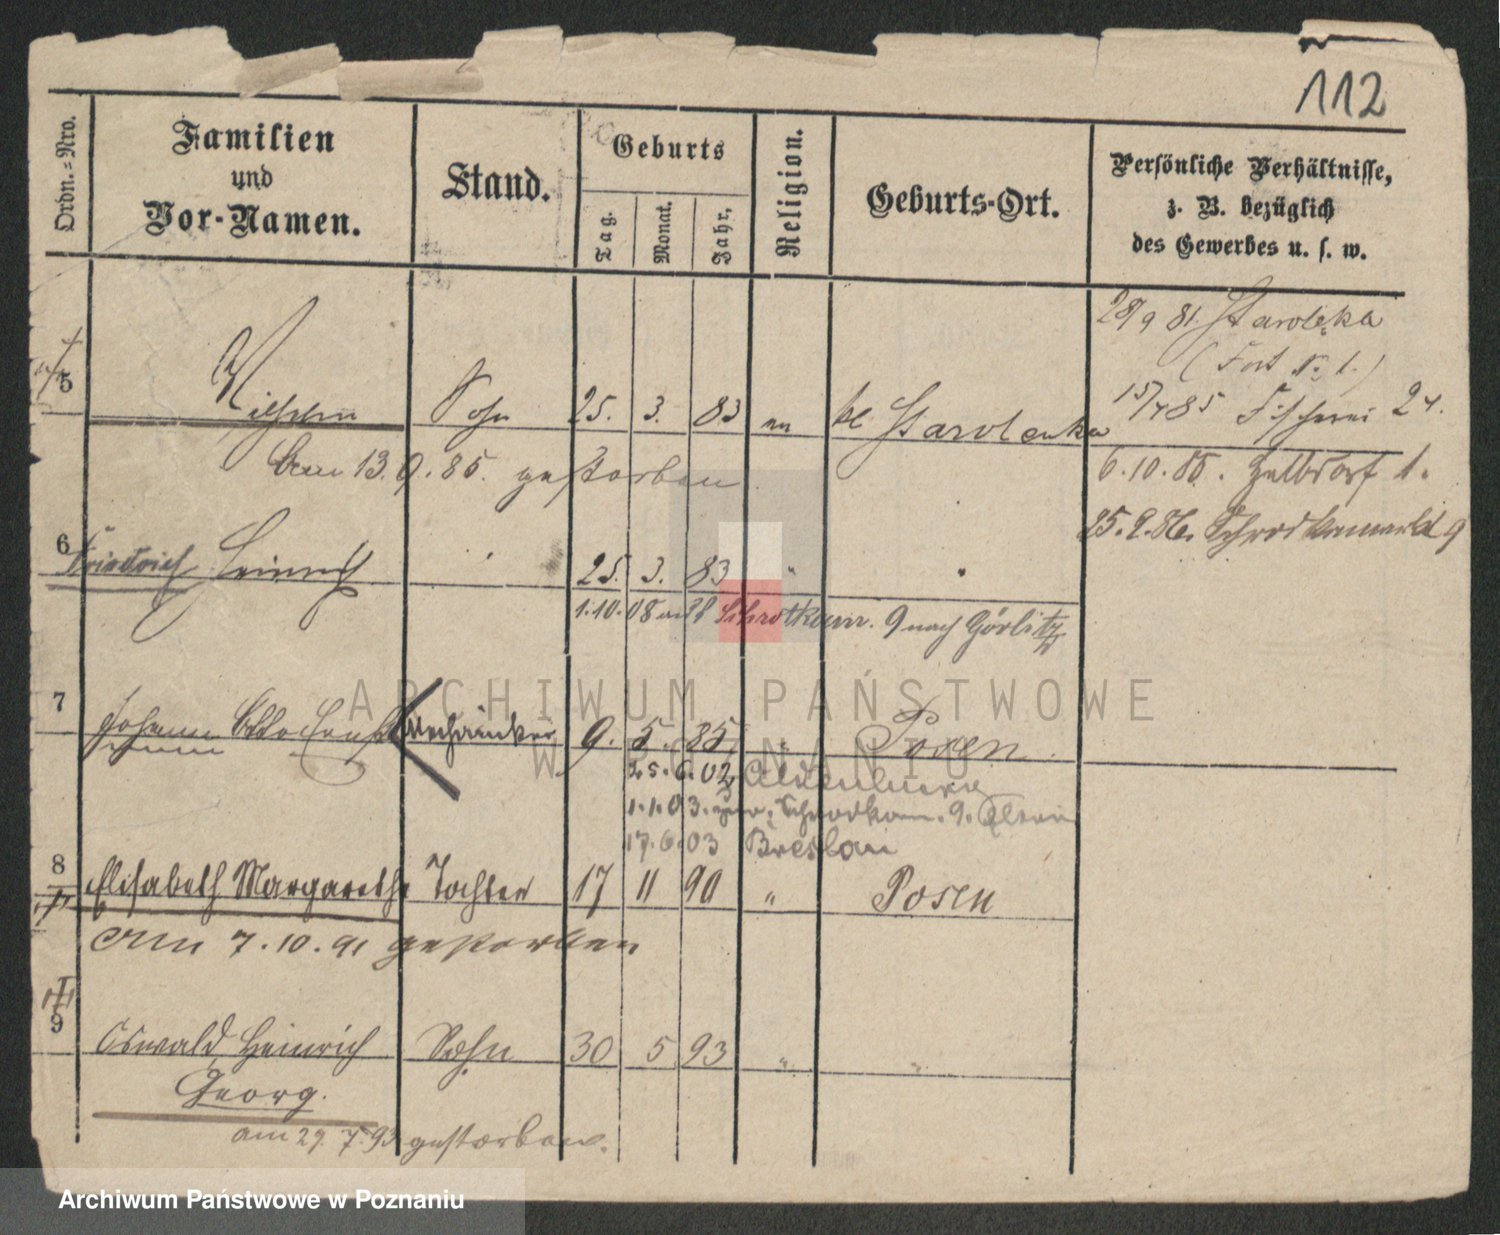 112
Ordn.=Nro.
Familien
und
Vor-Namen.
Stand.
Geburts
Tag.
Monat.
Jahr,
Religion.
Geburts-Ort.
Persönliche Verhältnisse,
z. B. bezüglich
des Gewerbes u. s. w.
28/9 81. Starolęka
(Fort № 1.)
5 Wilhelm Sohn 25. 3. 83 ev kl. Starolenka
15/7 85 Fischerei 24.
am 13.9.85. gestorben
6.10.85. Halbdorf 1.
25.2.86. Schrodkamarkt 9
6 Friedrich Heinrich " 25. 3. 83 " "
1.10.08 Schrotkamr. 9 nach Görlitz
7 Johann Otto Ernst Mechaniker 9. 5. 85 " Posen.
25.6.02
1.1.03. Schrodkam. 9. Eltern
17.6.03 Breslau
8 Elisabeth Margarethe Tochter 17 11 90 " Posen
am 7.10.91 gestorben
9 Oswald Heinrich Sohn 30 5 93 " "
Georg.
am 29.7.93 gestorben.
ARCHIWUM PAŃSTWOWE
W POZNANIU
Archiwum Państwowe w Poznaniu